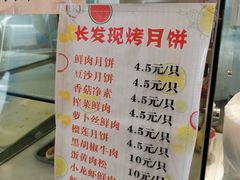 长发现烤月饼
鲜肉月饼 4.5元/只
豆沙月饼 4.5元/只
香菇净素 4.5元/只
榨菜鲜肉 4.5元/只
萝卜丝鲜肉 4.5元/只
榴莲月饼 4.5元/只
黑胡椒牛肉 10元/只
蛋黄肉松 10元/只
小龙虾鲜肉